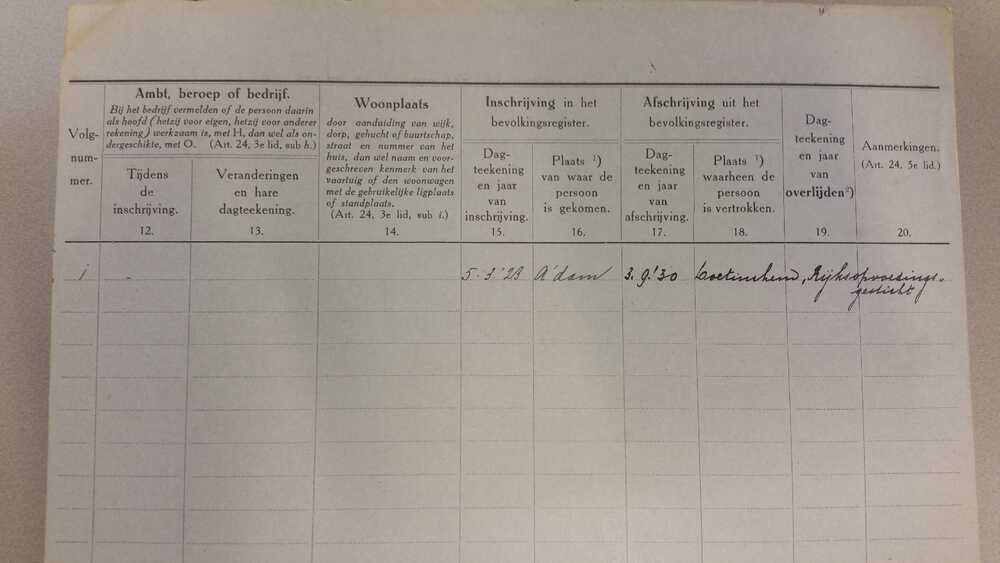 Volg-
num-
mer.
Ambt, beroep of bedrijf.
Bij het bedrijf vermelden of de persoon daarin
als hoofd (hetzij voor eigen, hetzij voor anderer
rekening) werkzaam is, met H, dan wel als on-
dergeschikte, met O. (Art. 24, 3e lid, sub h.)
Tijdens
de
inschrijving.
12.
Veranderingen
en hare
dagteekening.
13.
Woonplaats
door aanduiding van wijk,
dorp, gehucht of buurtschap,
straat en nummer van het
huis, dan wel naam en voor-
geschreven kenmerk van het
vaartuig of den woonwagen
met de gebruikelijke ligplaats
of standplaats.
(Art. 24, 3e lid, sub i.)
14.
Inschrijving in het
bevolkingsregister.
Dag-
teekening
en jaar
van
inschrijving.
15.
Plaats ¹)
van waar de
persoon
is gekomen.
16.
Afschrijving uit het
bevolkingsregister.
Dag-
teekening
en jaar
van
afschrijving.
17.
Plaats ¹)
waarheen de
persoon
is vertrokken.
18.
Dag-
teekening
en jaar
van
overlijden²)
19.
Aanmerkingen.
(Art. 24, 3e lid.)
20.
1 - 5.3.'29 A'dam 3.9.'30 Doetinchem, Rijksopvoedings-
gesticht